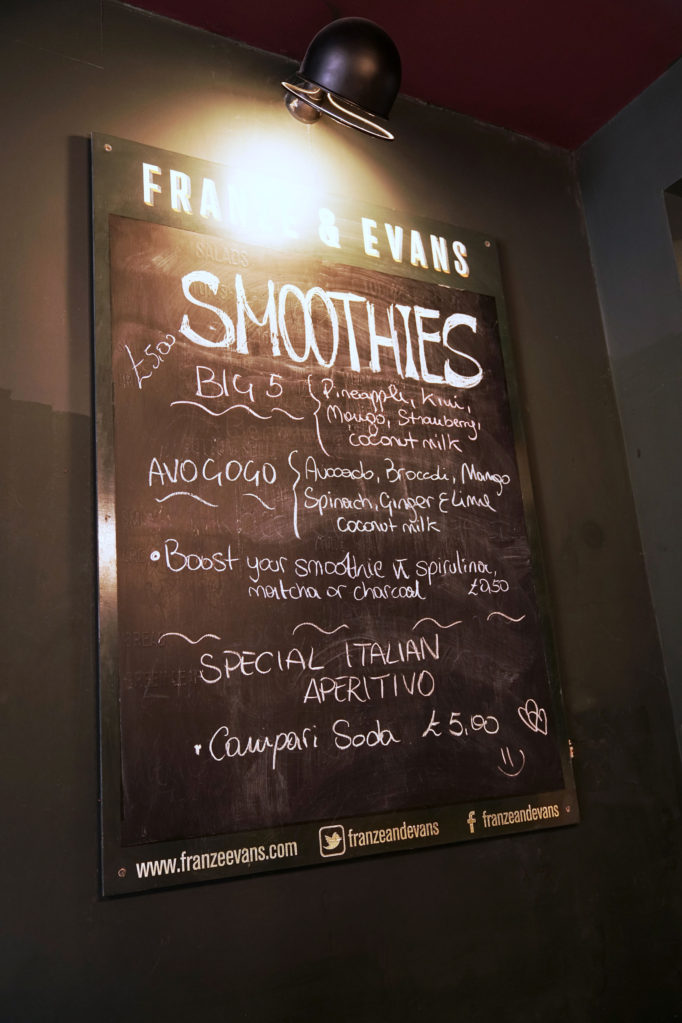 FRANZE & EVANS
SALADS
SMOOTHIES
£5.00
BIG 5
Pineapple, Kiwi,
Mango, Strawberry,
coconut milk
AVOGOGO
Avocado, Broccoli, Mango
Spinach, Ginger & Lime
Coconut milk
• Boost your smoothie w spirulina,
matcha or charcoal £0,50
SPECIAL ITALIAN
APERITIVO
• Campari Soda £5,00
www.franzeevans.com
franzeandevans
franzeandevans